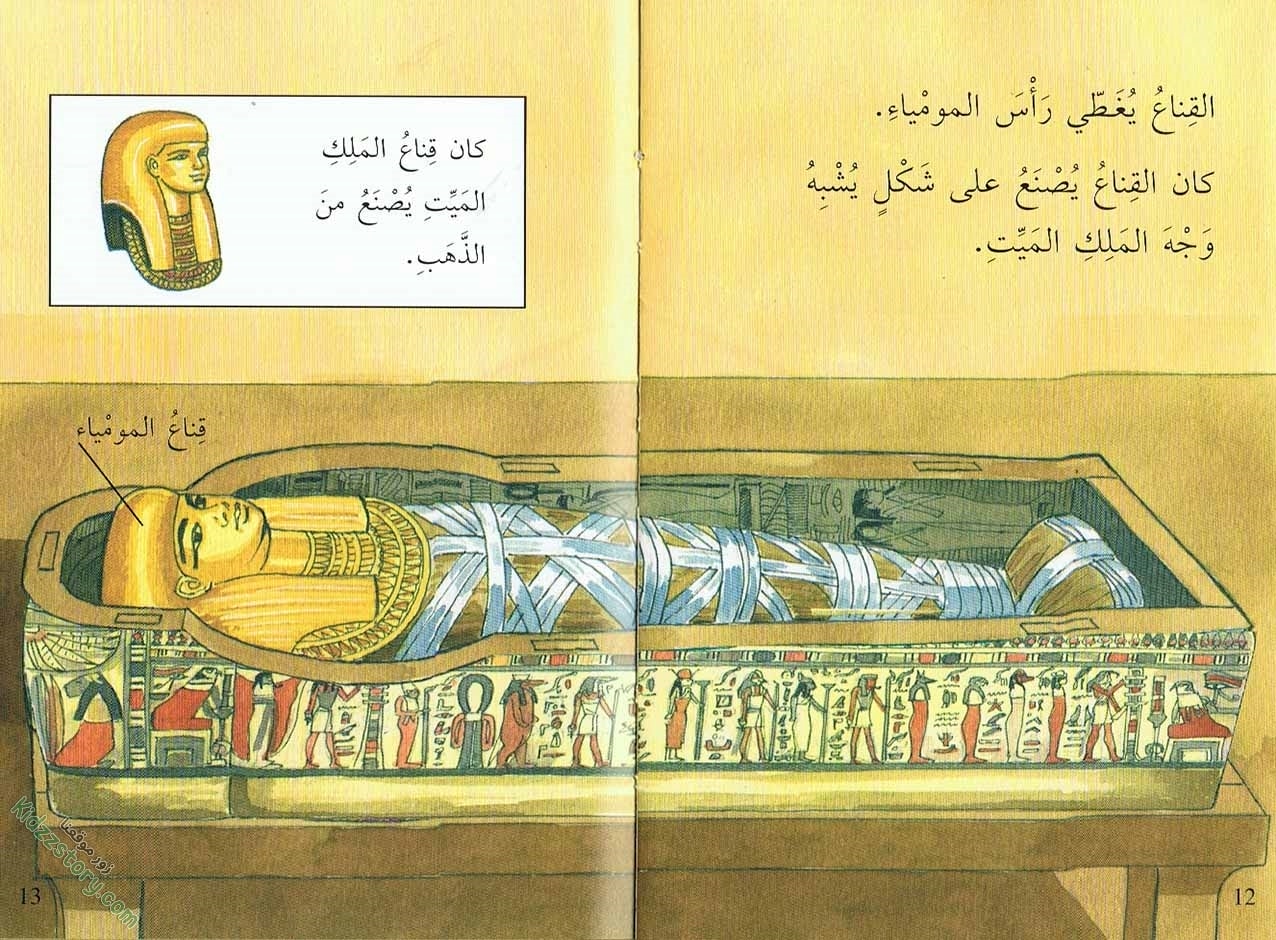 القِناعُ يُغَطّي رَأْسَ المومْياءِ.
كان القِناعُ يُصْنَعُ على شَكْلٍ يُشْبِهُ
وَجْهَ المَلِكِ المَيِّتِ.
12
كان قِناعُ المَلِكِ
المَيِّتِ يُصْنَعُ منَ
الذَّهَبِ.
قِناعُ المومْياء
13
زوروا موقعنا
Kidzzstory.com